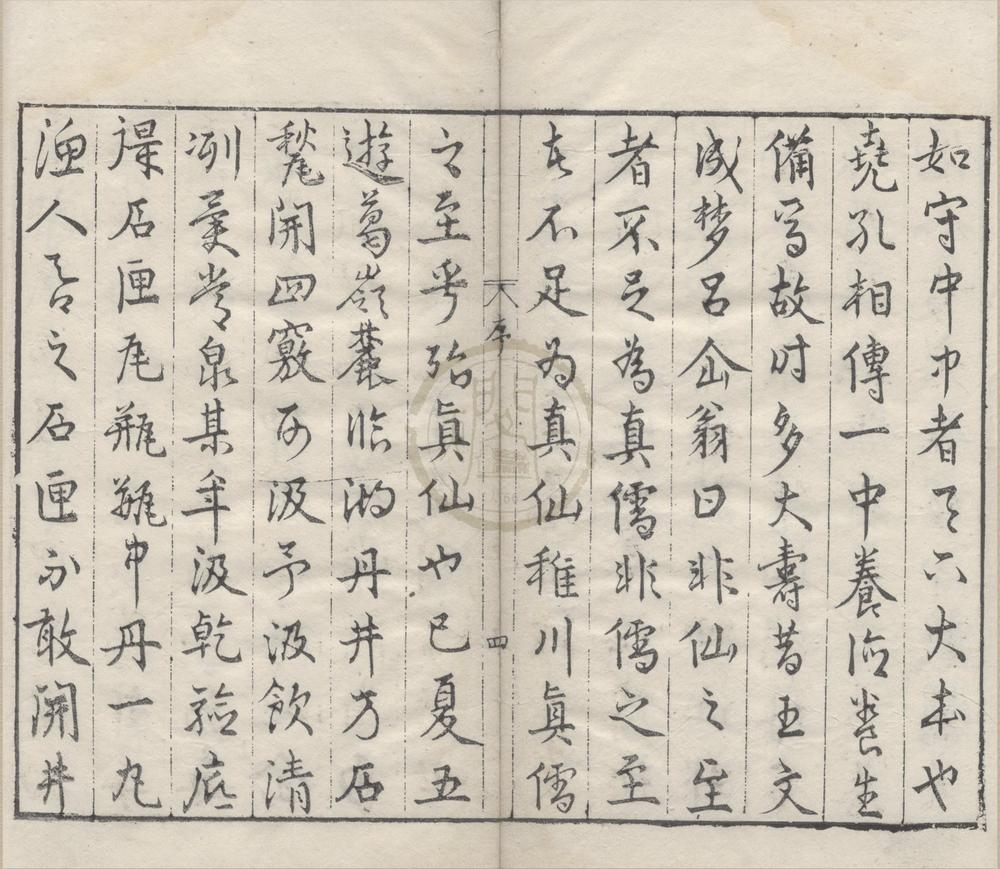 如守中中者天下大本也
堯孔相傳一中養德養生
備焉故时多大壽昔王文
成梦吕仚翁曰非仙之至
者不足為真儒非儒之至
者不足为真仙稚川真儒
序 四
之至乎殆真仙也已夏五
遊葛嶺麓臨湖丹井方石
甃開四竅可汲予汲飲清
冽異常泉某年汲乾验底
得石匣瓦瓶瓶中丹一丸
渔人吞之石匣不敢開井